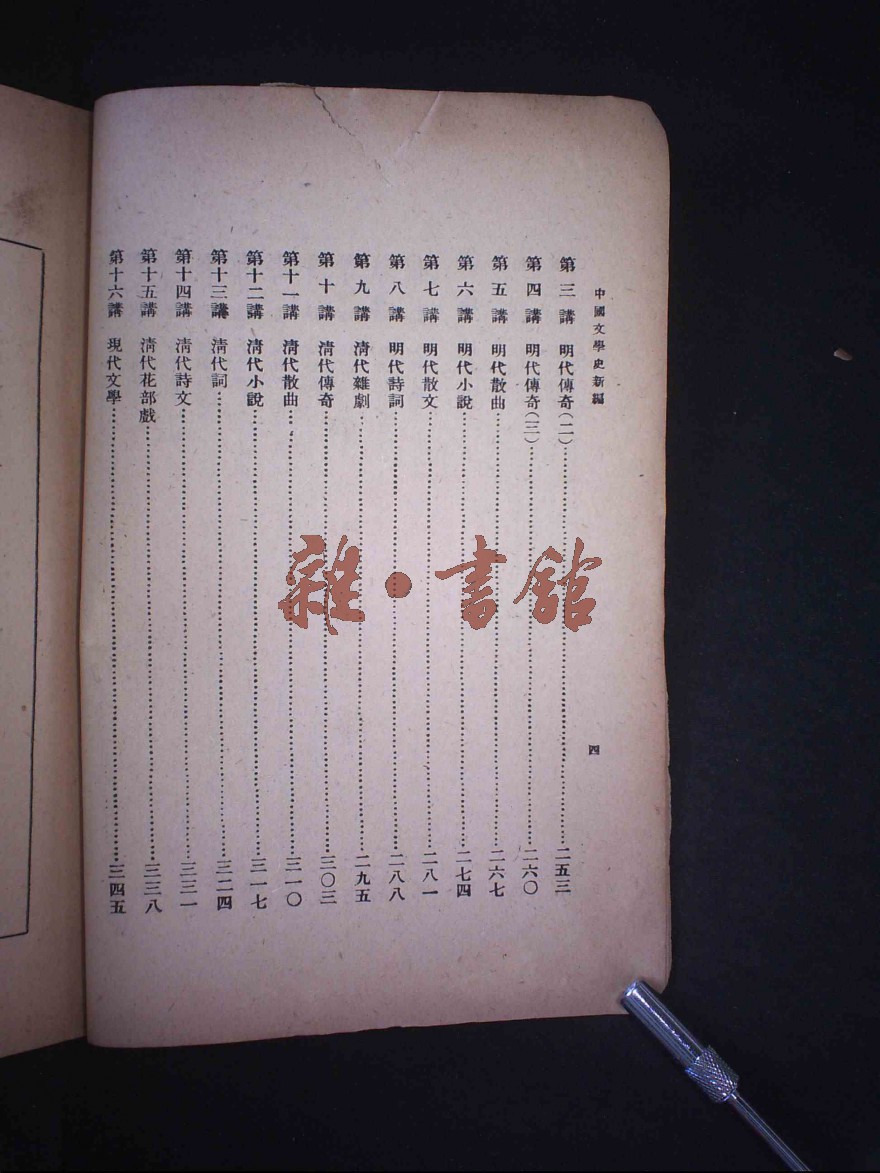 中國文學史新編
四
第三講 明代傳奇(二)……二五三
第四講 明代傳奇(三)……二六〇
第五講 明代散曲……二六七
第六講 明代小說……二七四
第七講 明代散文……二八一
第八講 明代詩詞……二八八
第九講 淸代雜劇……二九五
第十講 淸代傳奇……三〇三
第十一講 淸代散曲……三一〇
第十二講 淸代小說……三一七
第十三講 淸代詞……三二四
第十四講 淸代詩文……三三一
第十五講 淸代花部戲……三三八
第十六講 現代文學……三四五
雜·書館